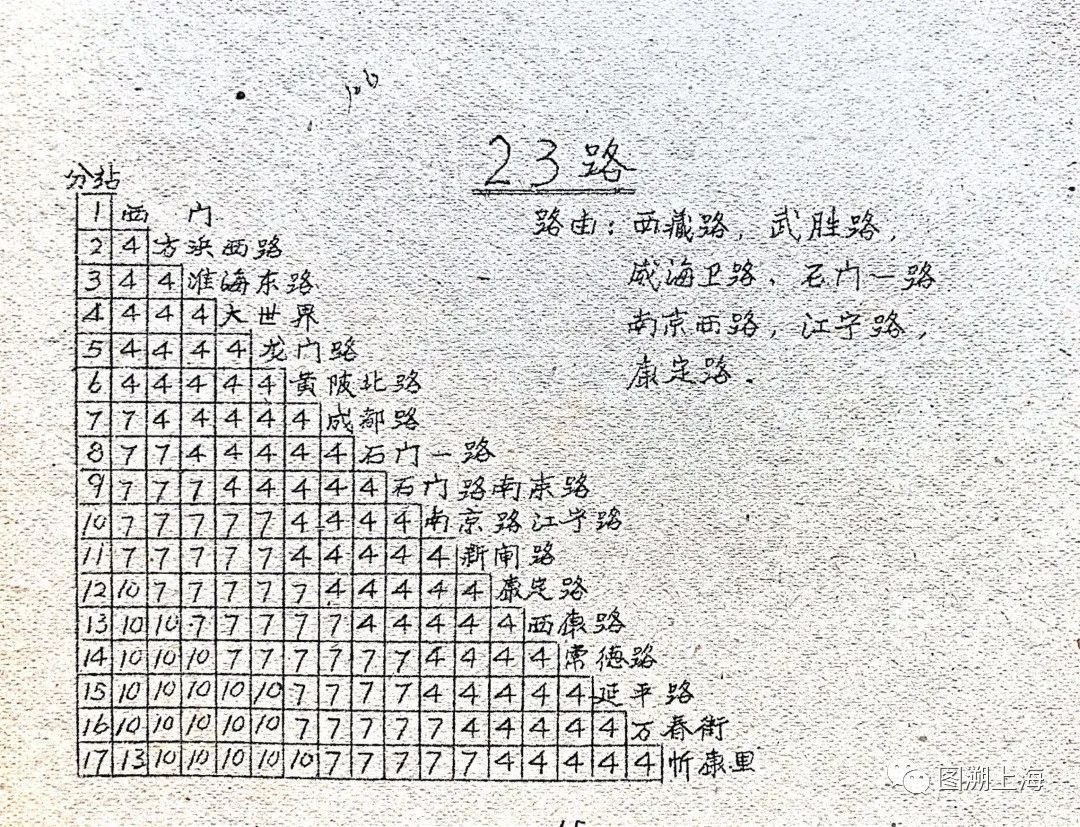 23路
分站
路由：西藏路，武胜路，
威海卫路、石门一路
南京西路，江宁路，
康定路．
1 西门
2 4 方浜西路
3 4 4 淮海东路
4 4 4 4 大世界
5 4 4 4 4 龙门路
6 4 4 4 4 4 黄陂北路
7 7 4 4 4 4 4 成都路
8 7 7 4 4 4 4 4 石门一路
9 7 7 7 4 4 4 4 4 石门路南京路
10 7 7 7 7 7 4 4 4 4 南京路江宁路
11 7 7 7 7 7 4 4 4 4 4 新闸路
12 10 7 7 7 7 7 4 4 4 4 4 康定路
13 10 10 7 7 7 7 7 4 4 4 4 4 西康路
14 10 10 10 7 7 7 7 7 7 4 4 4 4 常德路
15 10 10 10 10 10 7 7 7 7 4 4 4 4 4 延平路
16 10 10 10 10 10 7 7 7 7 7 4 4 4 4 4 万春街
17 13 10 10 10 10 10 7 7 7 7 7 4 4 4 4 4 忻康里
图溯上海